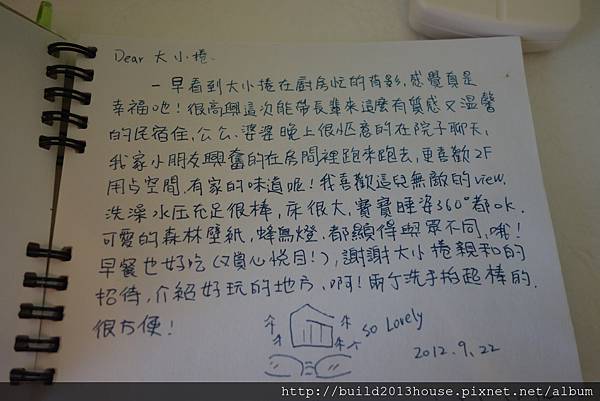 Dear 大小捲.
一早看到大小捲在廚房忙的背影,感覺真是
幸福吔!很高興這次能帶長輩來這麼有質感又溫馨
的民宿住,公公、婆婆晚上很愜意的在院子聊天,
我家小朋友興奮的在房間裡跑來跑去,更喜歡2F
用占空間,有家的味道呢!我喜歡這兒無敵的view,
洗澡水压充足很棒,床很大,寶寶睡姿360°都ok.
可愛的森林壁紙,蜂鳥燈.都顯得與眾不同,哦!
早餐也好吃(又賞心悅目!),謝謝大小捲親和的
招待,介紹好玩的地方,啊!兩個洗手枱超棒的.
很方便!
so Lovely
2012.9.22
http://build2013house.pixnet.net/album